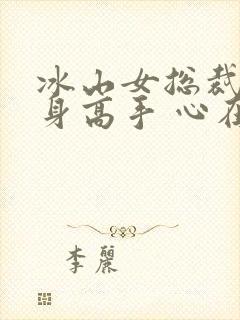 冰山女总裁
身高手 心在
李麗